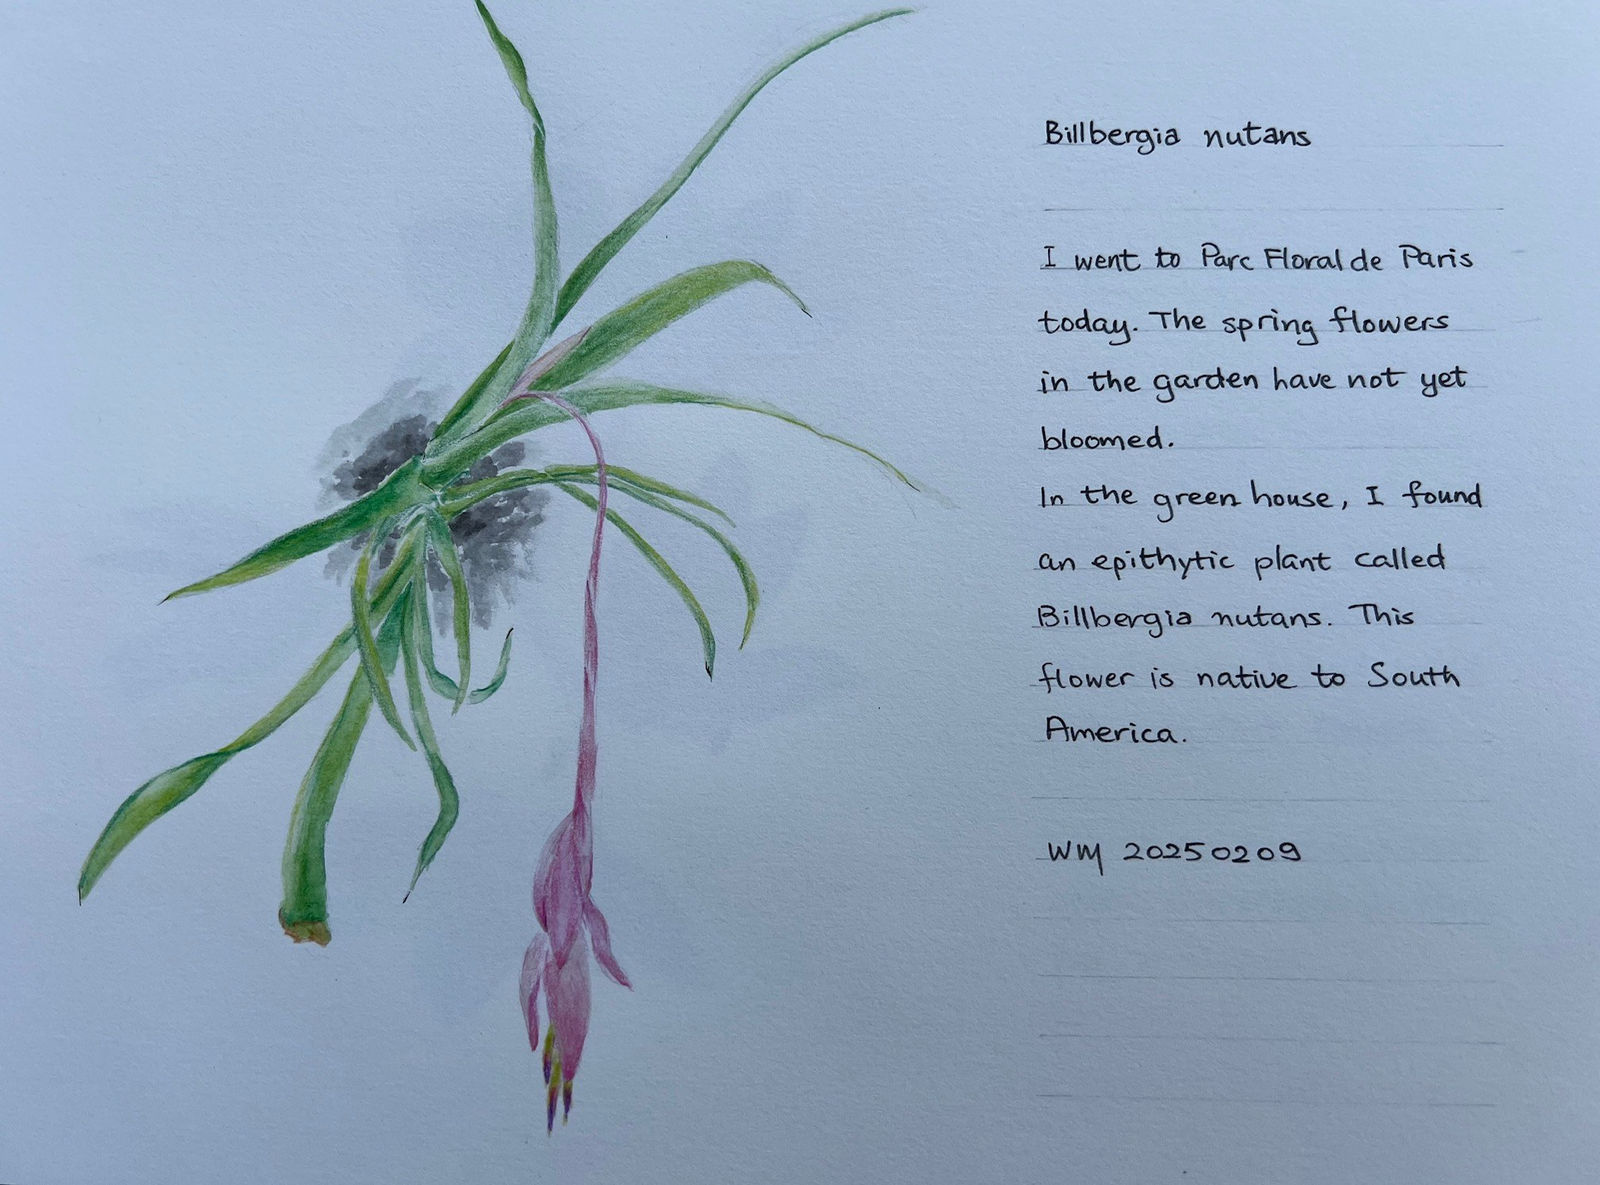 Billbergia nutans
I went to Parc Floral de Paris
today. The spring flowers
in the garden have not yet
bloomed.
In the green house, I found
an epithytic plant called
Billbergia nutans. This
flower is native to South
America.
WM 20250209